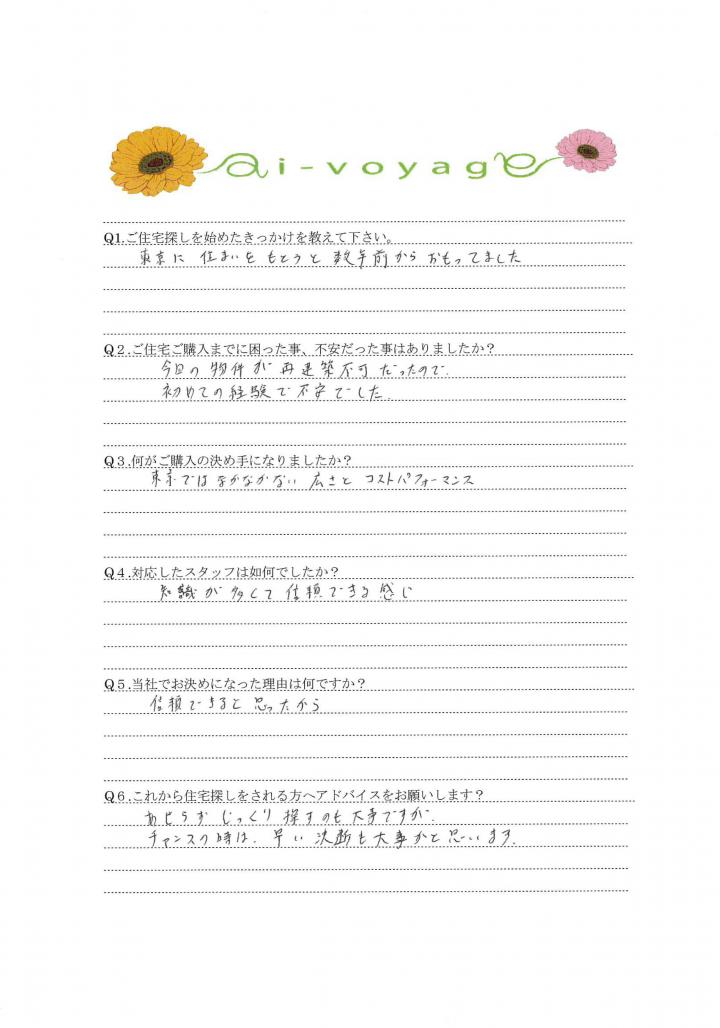 ai-voyage
Q1.ご住宅探しを始めたきっかけを教えて下さい。
東京に 住まいを もとうと 数年前から おもってました
Q２.ご住宅ご購入までに困った事、不安だった事はありましたか？
今回の 物件が 再建築不可 だったので.
初めての経験で 不安でした.
Q３.何がご購入の決め手になりましたか？
東京では なかなかない 広さと コストパフォーマンス
Q４.対応したスタッフは如何でしたか？
知識が 多くて 信頼できる 感じ
Q５.当社でお決めになった理由は何ですか？
信頼できると 思ったから
Q６.これから住宅探しをされる方へアドバイスをお願いします？
あせらず じっくり 探すのも 大事ですが.
チャンスの時は. 早い 決断も大事かと思います.